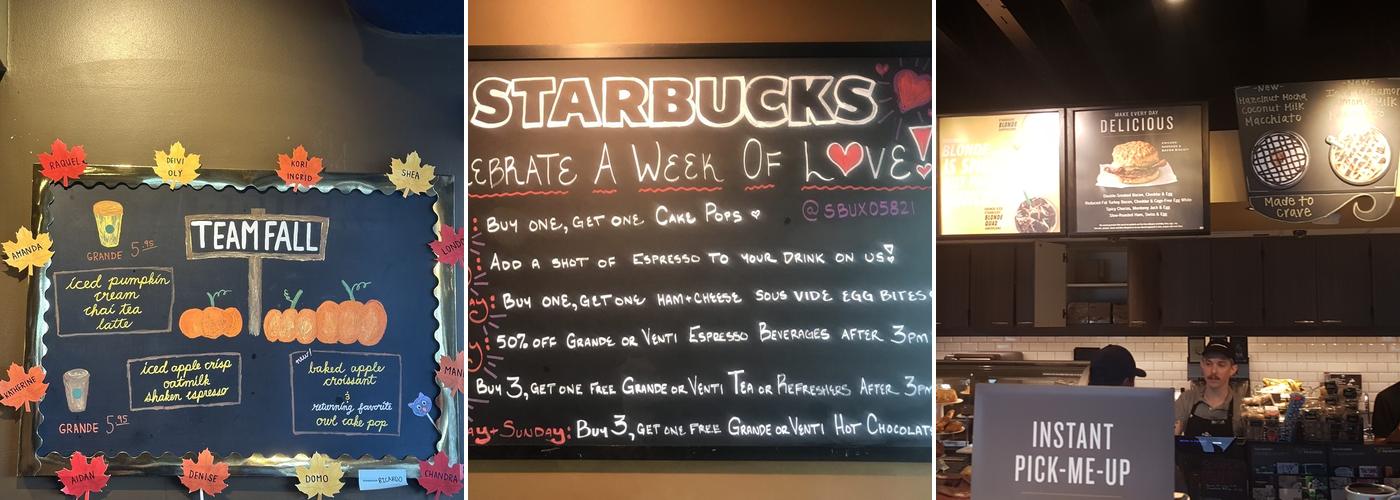 RAQUEL
DEIVI
OLY
KORI
INGRID
SHEA
AMANDA
KATHERINE
AIDAN
DENISE
DOMO
RICARDO
CHANDRA
TEAM FALL
GRANDE 5.95
iced pumpkin
cream
chai tea
latte
iced apple crisp
oatmilk
shaken espresso
GRANDE 5.95
new!
baked apple
croissant
&
returning favorite
owl cake pop
STARBUCKS
EBRATE A WEEK OF LOVE!
@SBUX05821
BUY ONE, GET ONE CAKE POPS
ADD A SHOT OF ESPRESSO TO YOUR DRINK ON US!
BUY ONE, GET ONE HAM+CHEESE SOUS VIDE EGG BITES
50% OFF GRANDE OR VENTI ESPRESSO BEVERAGES AFTER 3PM
BUY 3, GET ONE FREE GRANDE OR VENTI TEA OR REFRESHERS AFTER 3PM
AY+SUNDAY: BUY 3, GET ONE FREE GRANDE OR VENTI HOT CHOCOLAT
BLONDE
MAKE EVERY DAY
DELICIOUS
Double-Smoked Bacon, Cheddar & Egg
Reduced-Fat Turkey Bacon, Cheddar & Cage-Free Egg White
Spicy Chorizo, Monterey Jack & Egg
Slow-Roasted Ham, Swiss & Egg
-New-
Hazelnut Mocha
Coconut Milk
Macchiato
-New-
Made to
Crave
INSTANT
PICK-ME-UP